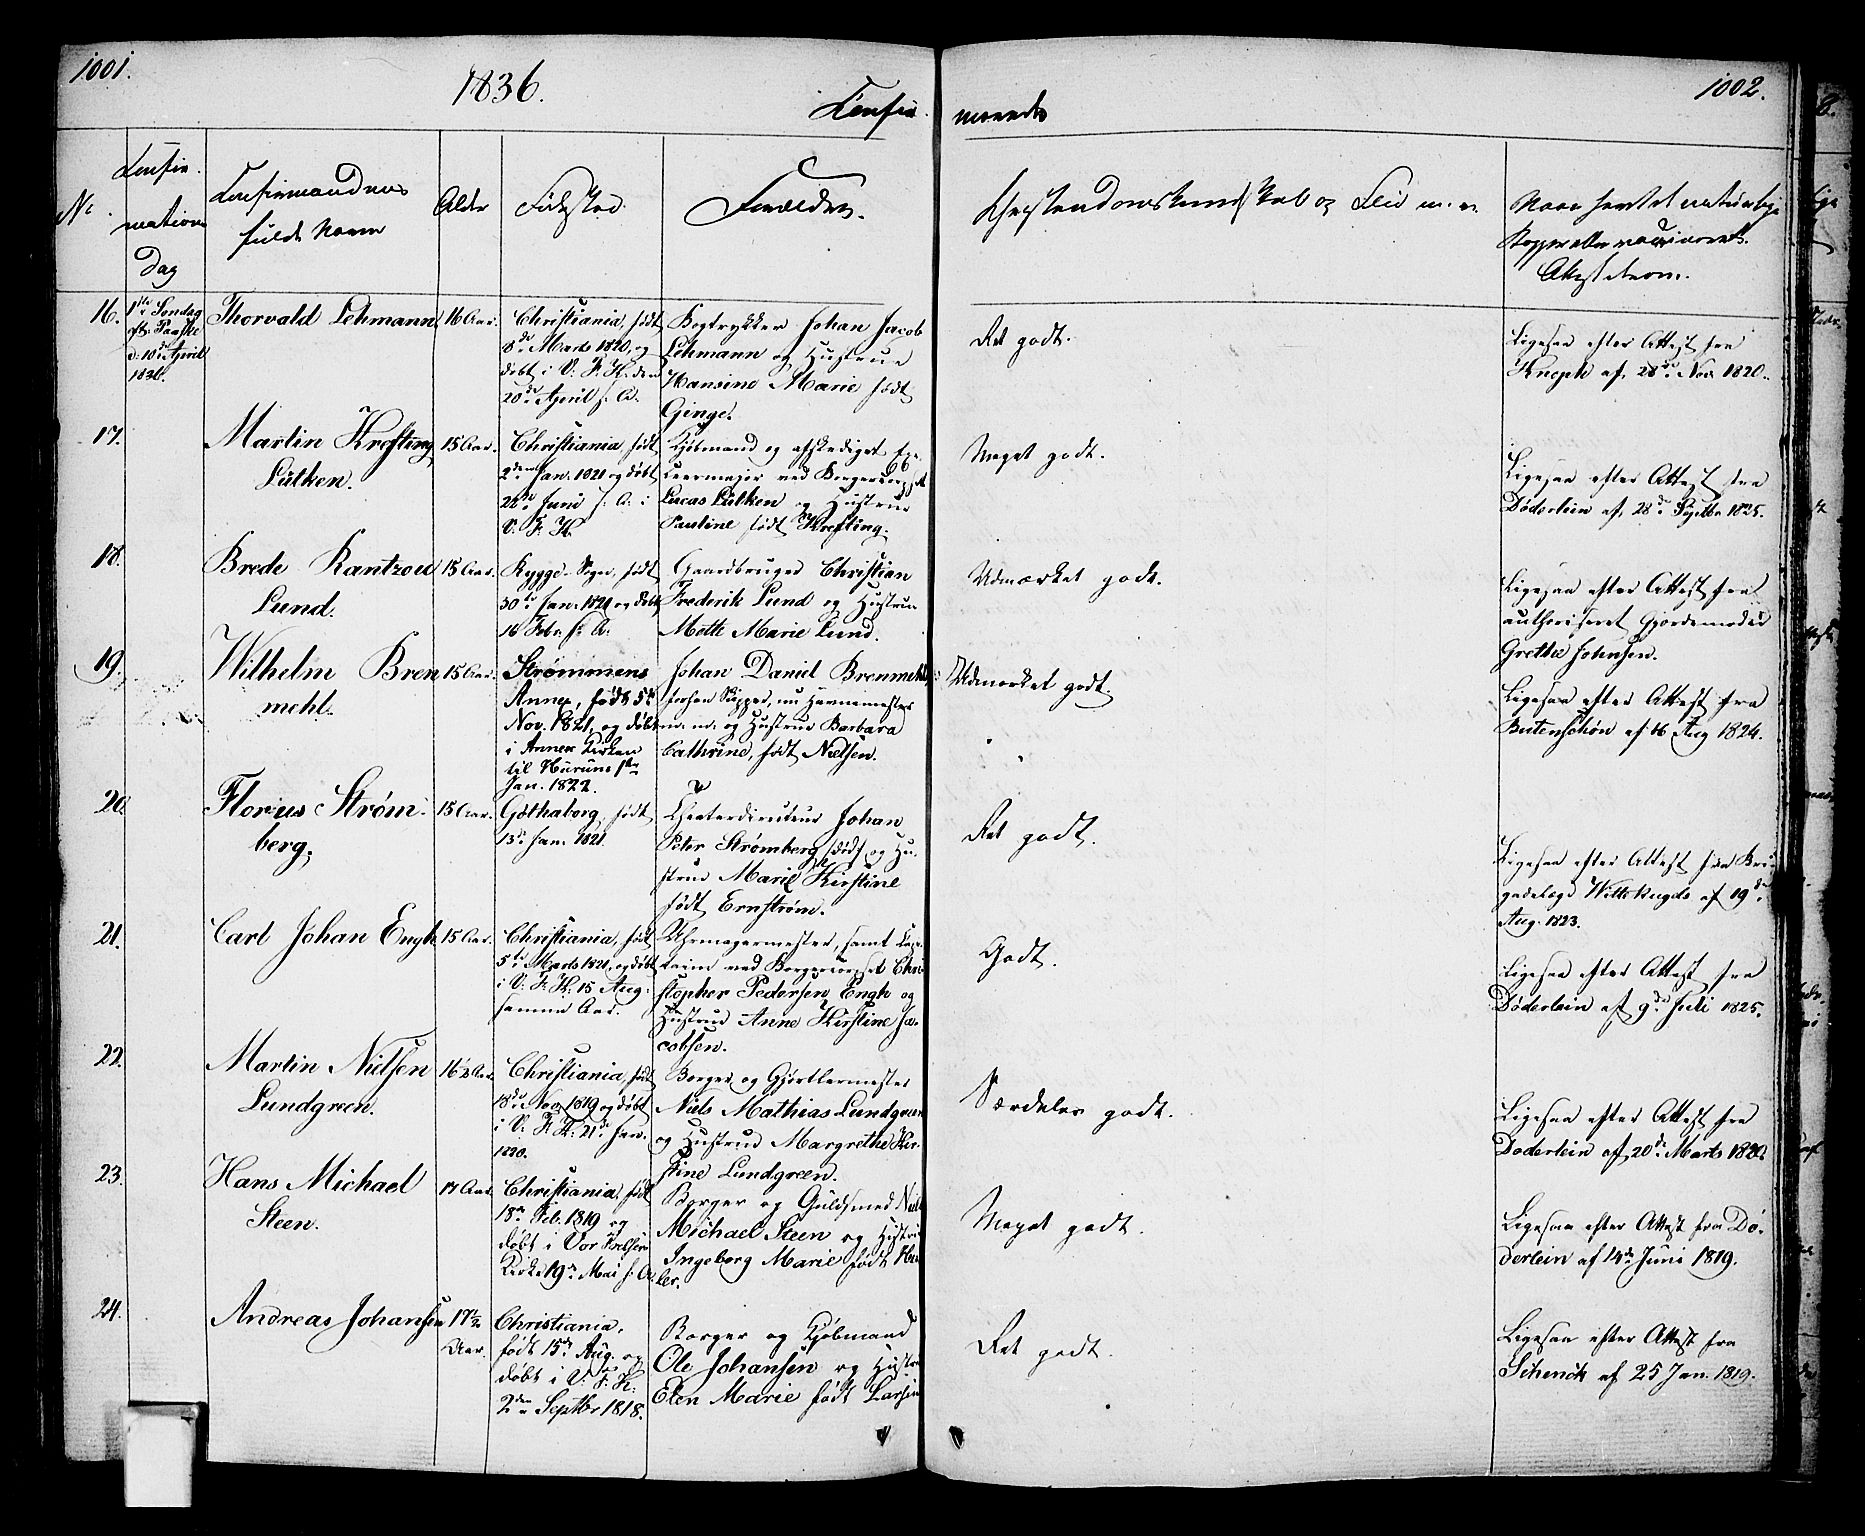 1001.
1836.
Confir-
No.
Confir-
mations
Dag
Confirmandens
fulde Navn
Alder
Fødested.
Forældre.
16.
1ste Søndag
eft. Paaske
d. 10de April
1836.
Thorvald Lehmann
16 Aar.
Christiania, født
8de Marts 1820, og
døbt i V. F. K. den
20de April s. A.
Bogtrykker Johan Jacob
Lehmann og Hustrue
Hansine Marie født
Ginge.
17.
Martin Krefting
Lütken.
15 Aar.
Christiania, født
2den Jan. 1821 og døbt
22de Juni s. A. i
V. F. K.
Kjøbmand og afskediget
ved Borgercorpset
Lucas Lütken og Hustrue
Pauline født Krefting.
18.
Brede Rantzou
Lund.
15 Aar.
Rygge Sogn, født
30te Jan. 1821 og døbt
16 Febr. s. A.
Gaardbruger Christian
Frederik Lund og Hustrue
Mette Marie Lund.
19.
Wilhelm Bren
mehl.
15 Aar.
Strømmens
Annex, født 5te
Nov. 1821, og døbt
i Annex Kirken
til Hurum 1ste
Jan. 1822.
Johan Daniel Brenmehl,
forhen Skipper, nu Havnemester
m. m. og Hustrue Barbara
Cathrine, født Nielsen.
20.
Florus Strøm-
berg.
15 Aar.
Gøthaborg, født
13de Jan. 1821.
Theaterdirecteur Johan
Peter Strømberg, død, og Hu-
strue Marie Kirstine
født Ernstrøm.
21.
Carl Johan Engh
15 Aar.
Christiania, født
5te Marts 1821, og døbt
i V. F. K. 15 Aug.
samme Aar.
Uhrmagermester, samt Cap-
tain ved Borgercorpset Chri-
stopher Pedersen Engh og
Hustrue Anne Kirstine Ja-
cobsen.
22.
Martin Nielsen
Lundgreen.
16½ Aar.
Christiania, født
18de Nov. 1819 og døbt
i V. F. K. 21de Jan.
1820.
Borger og Gjørtlermester
Niels Mathias Lundgreen
og Hustrue Margrethe Kir-
stine Lundgreen.
23.
Hans Michael
Steen.
17 Aar.
Christiania, født
18de Feb. 1819 og
døbt i Vor Frelsers
Kirke 19de Mai s. A.
Borger og Guldsmed Niels
Michael Steen og Hustrue
Ingeborg Marie født
24.
Andreas Johansen
17½
Aar.
Christiania,
født 15de Aug. og
døbt i V. F. K.
2den Septbr 1818.
Borger og Kjøbmand
Ole Johansen og Hustrue
Elen Marie født Larsen
1002.
merede
Christendomskundskab og Flid m. v.
Naar havt de naturlige
Kopper eller vaccineret.
Attest derom.
Ret godt.
Ligesaa efter Attest fra
Knoph af 28de Nov. 1820.
Meget godt.
Ligesaa efter Attest fra
Døderlein af 28de Septbr 1825.
Udmærket godt.
Ligesaa efter Attest fra
authoriseret Gjordemoder
Grethe Johnsen.
Udmærket godt.
Ligesaa efter Attest fra
Butenschøn af 16 Aug 1824.
Ret godt.
Ligesaa efter Attest fra Bri-
gadelæge Wittekugels af 19de
Aug. 1823.
Godt.
Ligesaa efter Attest fra
Døderlein af 9de Juli 1825.
Særdeles godt.
Ligesaa efter Attest fra
Døderlein af 20de Marts 1820.
Meget godt.
Ligesaa efter Attest fra Dø-
derlein af 14de Juni 1819.
Ret godt.
Ligesaa efter Attest fra
Schenck af 25 Jan. 1819.